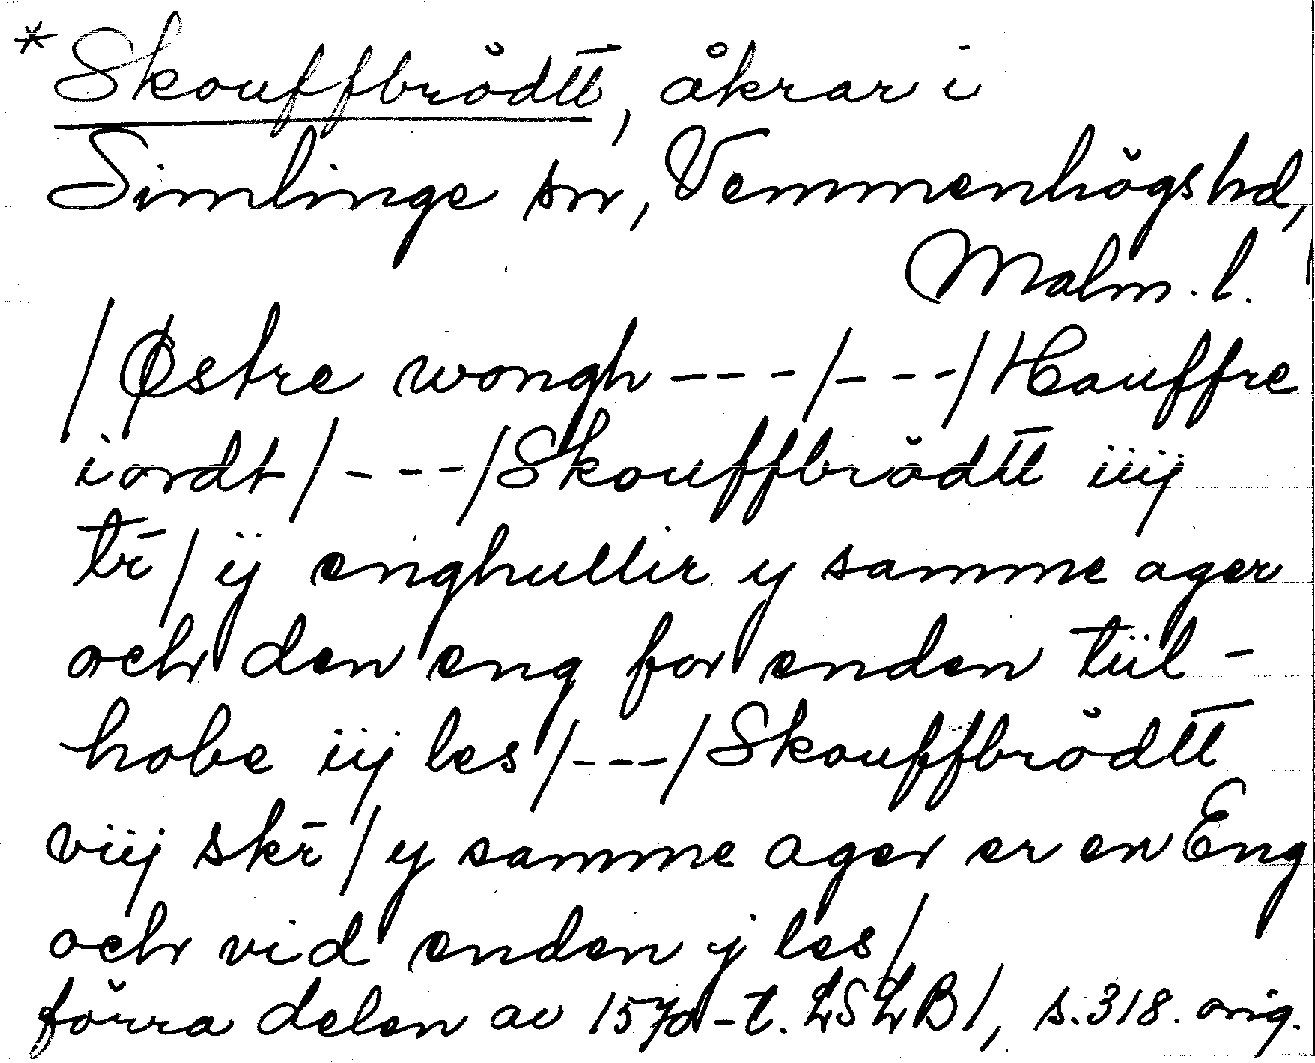 * Skouffbrödtt, åkrar i
Simlinge sn, Vemmenhögs hd,
Malm. l.
/Østre wongh ---/---/Hauffre
iordt/---/Skouffbrödtt iiij
tr̄/ ij enghullir y samme ager
och den eng for enden tiil-
hobe iij les/---/Skouffbrödtt
viij skr̄/y samme ager er en Eng
och vid enden j les/
förra delen av 1570-t. LSLB1, s. 318. orig.